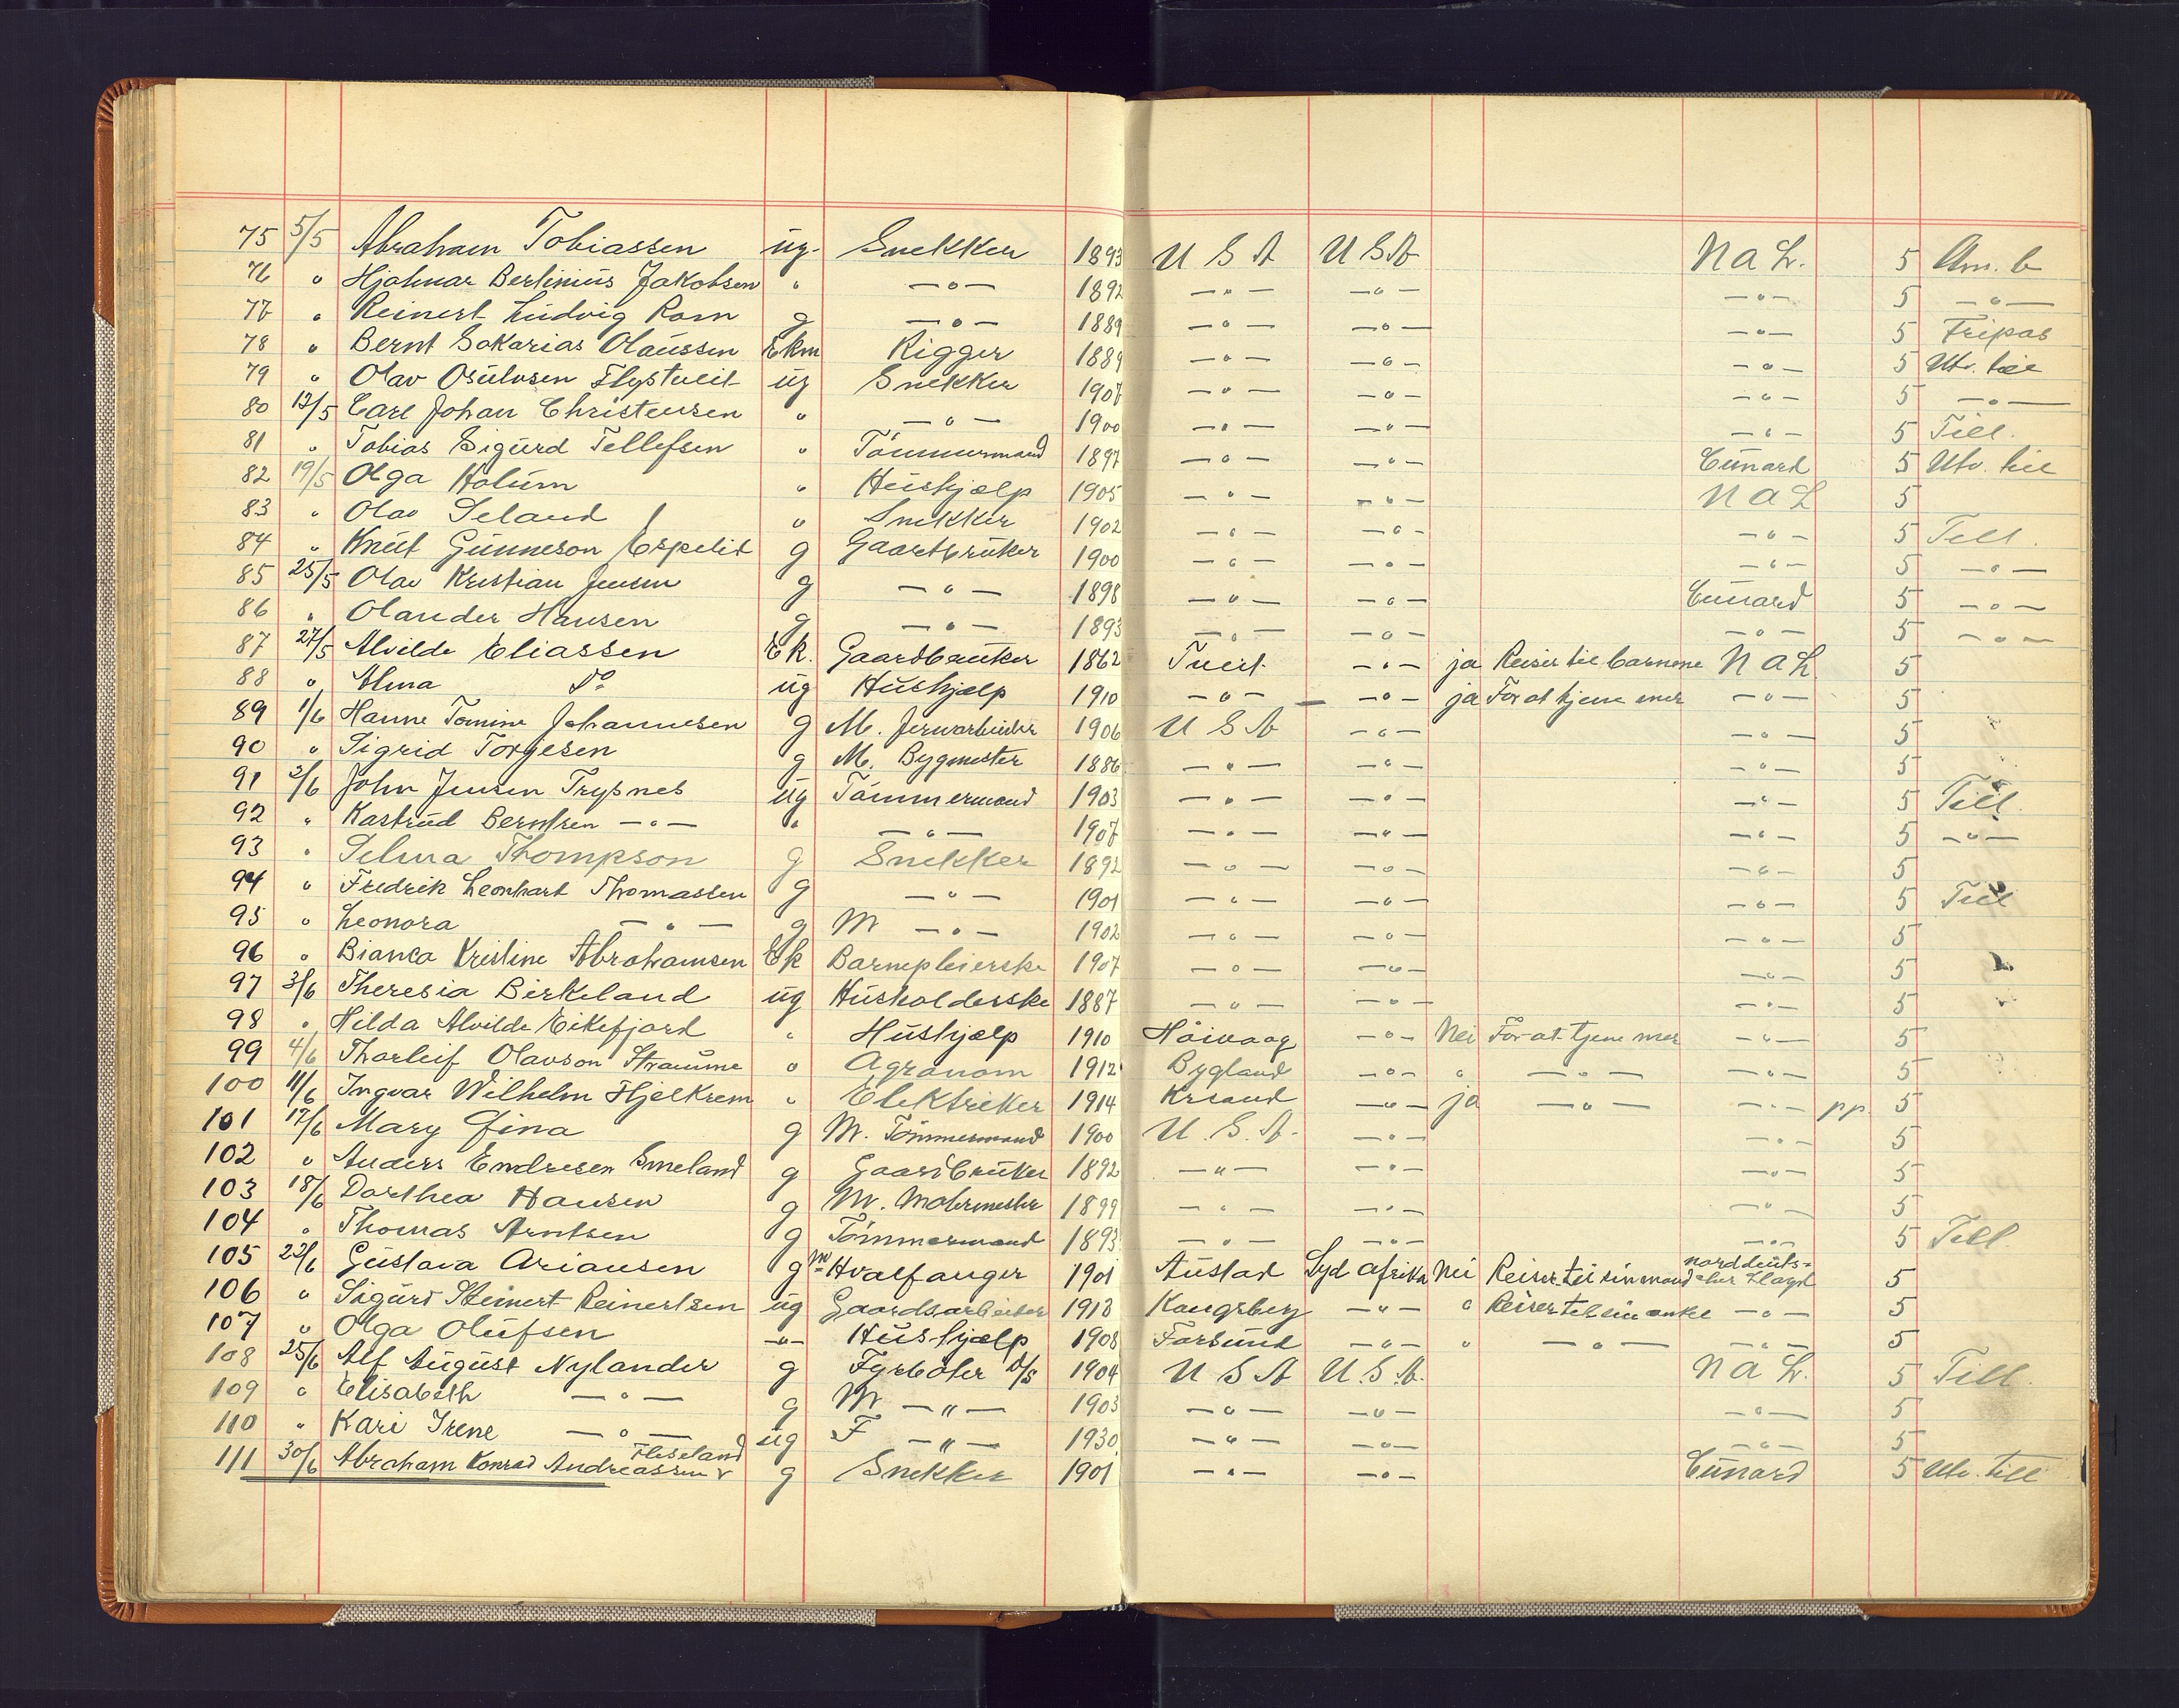 75 5/5 Abraham Tobiassen ug. Snekker 1893 U S A U S A N a L. 5 Am. b
76 " Hjalmar Bertinius Jakobsen " —"— 1892 —"— —"— —"— 5 —"—
77 " Reinert Ludvig Rom g —"— 1889 —"— —"— —"— 5 Fripas
78 " Bernt Sakarias Olaussen Ekm Rigger 1889 —"— —"— —"— 5 Utv. till
79 " Olav Osulvsen Flystveit ug Snekker 1907 —"— —"— —"— 5 —"—
80 12/5 Carl Johan Christensen " —"— 1900 —"— —"— —"— 5 Till.
81 " Tobias Sigurd Tellefsen " Tömmermand 1897 —"— —"— Cunard 5 Utv. till
82 19/5 Olga Holum " Hushjælp 1905 —"— —"— N a L 5
83 " Olav Seland " Snekker 1902 —"— —"— —"— 5 Till.
84 " Knut Gunneson Espelid g Gaardbruker 1900 —"— —"— —"— 5 —"—
85 25/5 Olav Kristian Jensen g —"— 1898 —"— —"— Cunard 5 —"—
86 " Olander Hansen g —"— 1893 —"— —"— —"— 5 —"—
87 27/5 Alvilde Eliassen Ek. Gaardbruker 1862 Tveit —"— ja Reiser til barnene N a L 5
88 " Alma Do ug Hushjælp 1910 —"— —"— ja For at tjene mer —"— 5
89 1/6 Hanne Tomine Johannesen g M. Jernarbeider 1906 U S A —"— —"— 5
90 " Sigrid Torgesen g M. Bygmester 1886 —"— —"— —"— 5
91 2/6 John Jensen Trysnes ug Tömmermand 1903 —"— —"— —"— 5 Till.
92 " Kastrud Berntsen —"— " —"— 1907 —"— —"— —"— 5 —"—
93 " Selma Thompson g Snekker 1892 —"— —"— —"— 5
94 " Fredrik Leonhart Thomassen g —"— 1901 —"— —"— —"— 5 Till
95 " Leonora —"— g M —"— 1902 —"— —"— —"— 5
96 " Bianca Kristine Abrahamsen Ek Barnepleierske 1907 —"— —"— —"— 5
97 3/6 Theresia Birkeland ug Husholderske 1887 —"— —"— —"— 5
98 " Hilda Alvilde Eikefjord " Hushjælp 1910 Höivaag —"— Nei For at tjene mer —"— 5
99 4/6 Thorleif Olavson Straume " Agronom 1912 Bygland —"— " —"— —"— 5
100 11/6 Ingvar Wilhelm Hjelkrem " Elektriker 1914 Krsand —"— ja —"— —"— pp. 5
101 17/6 Mary Gina g M. Tömmermand 1900 U. S. A. —"— —"— 5
102 " Anders Endresen Smeland g Gaardbruker 1892 —"— —"— —"— 5
103 18/6 Dorthea Hansen g M. Malermester 1899 —"— —"— —"— 5
104 " Thomas Arntsen g Tömmermand 1893 —"— —"— —"— 5 Till
105 22/6 Gustava Ariansen g M Hvalfanger 1901 Austad Syd afrika Nei Reiser til sin mand norddeuts-cher Lloyd 5
106 " Sigurd Steinert Reinertsen ug Gaardsarbeider 1913 Kongsberg —"— " Reiser til sin onkel —"— 5
107 " Olga Olufsen —"— Hushjælp 1908 Farsund —"— " —"— —"— 5
108 25/6 Alf August Nylander g Fyrböter D/S 1904 U S A U. S. A. N a L. 5 Till.
109 " Elisabeth —"— g M —"— 1903 —"— —"— —"— 5
110 " Kari Irene —"— ug F —"— 1930 —"— —"— —"— 5
111 30/6 Abraham Konrad Andreassen Fleseland g Snekker 1901 —"— —"— Cunard 5 Utv. till